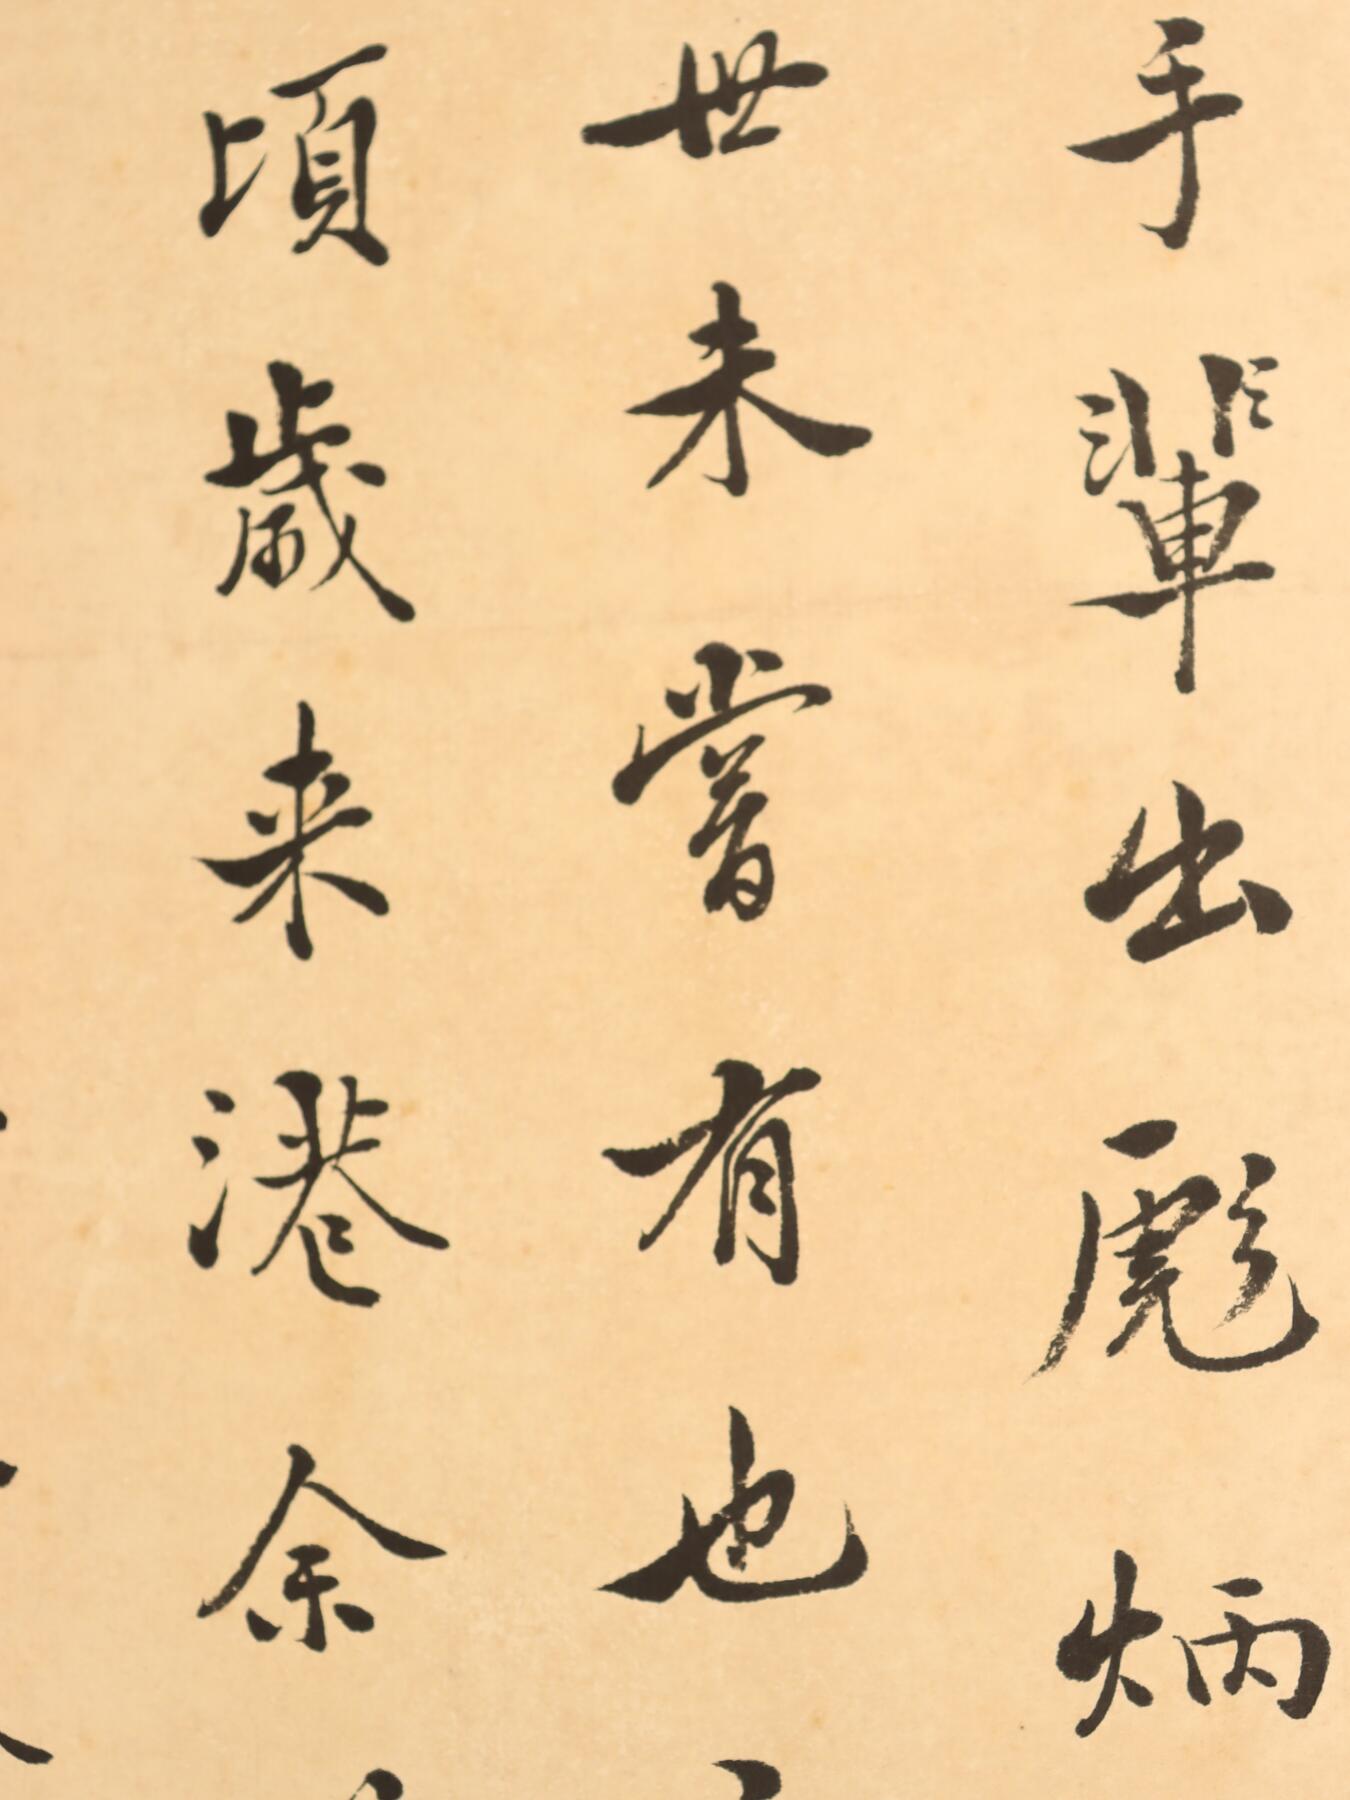 手輩出彪炳
世未嘗有也
頃歲来港余